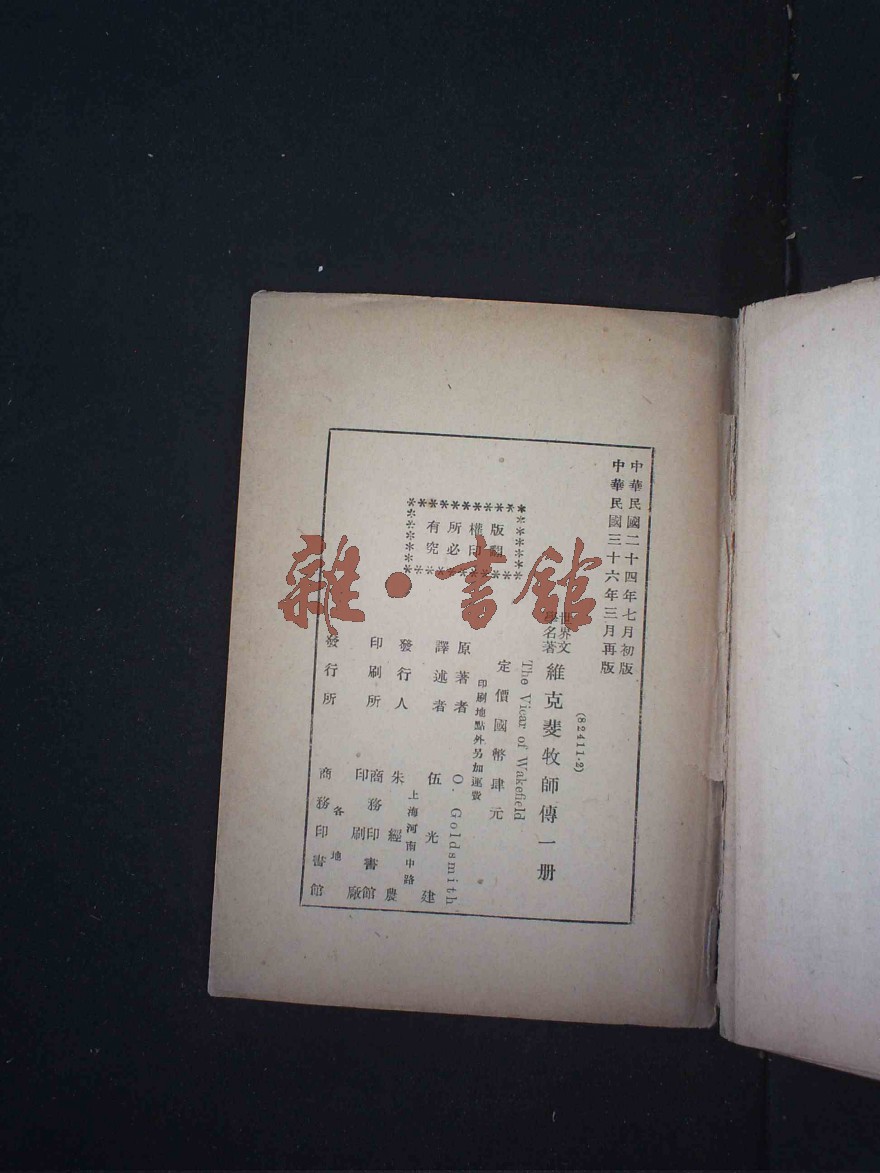 中華民國二十四年七月初版
中華民國三十六年三月再版
(82411·2)
世界文
學名著
維克斐牧師傳一册
The Vicar of Wakefield
定價國幣肆元
印刷地點外另加運費
版權所有
翻印必究
原著者 O. Goldsmith
譯述者 伍光建
上海河南中路
發行人 朱經農
印刷所 商務印書館
印刷廠
各地
發行所 商務印書館
雜·書館